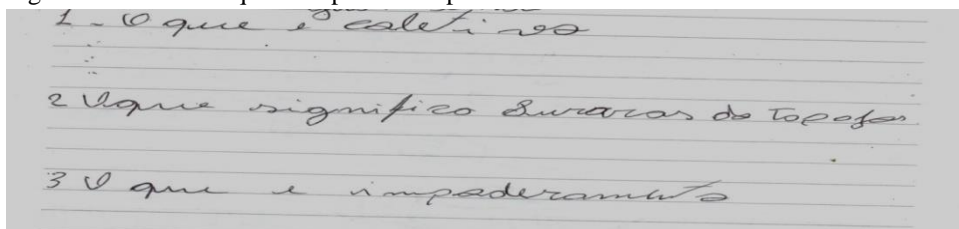 1 - O que é coletivo
2 O que significo Suraras do Topofos
3 O que e impoderamento